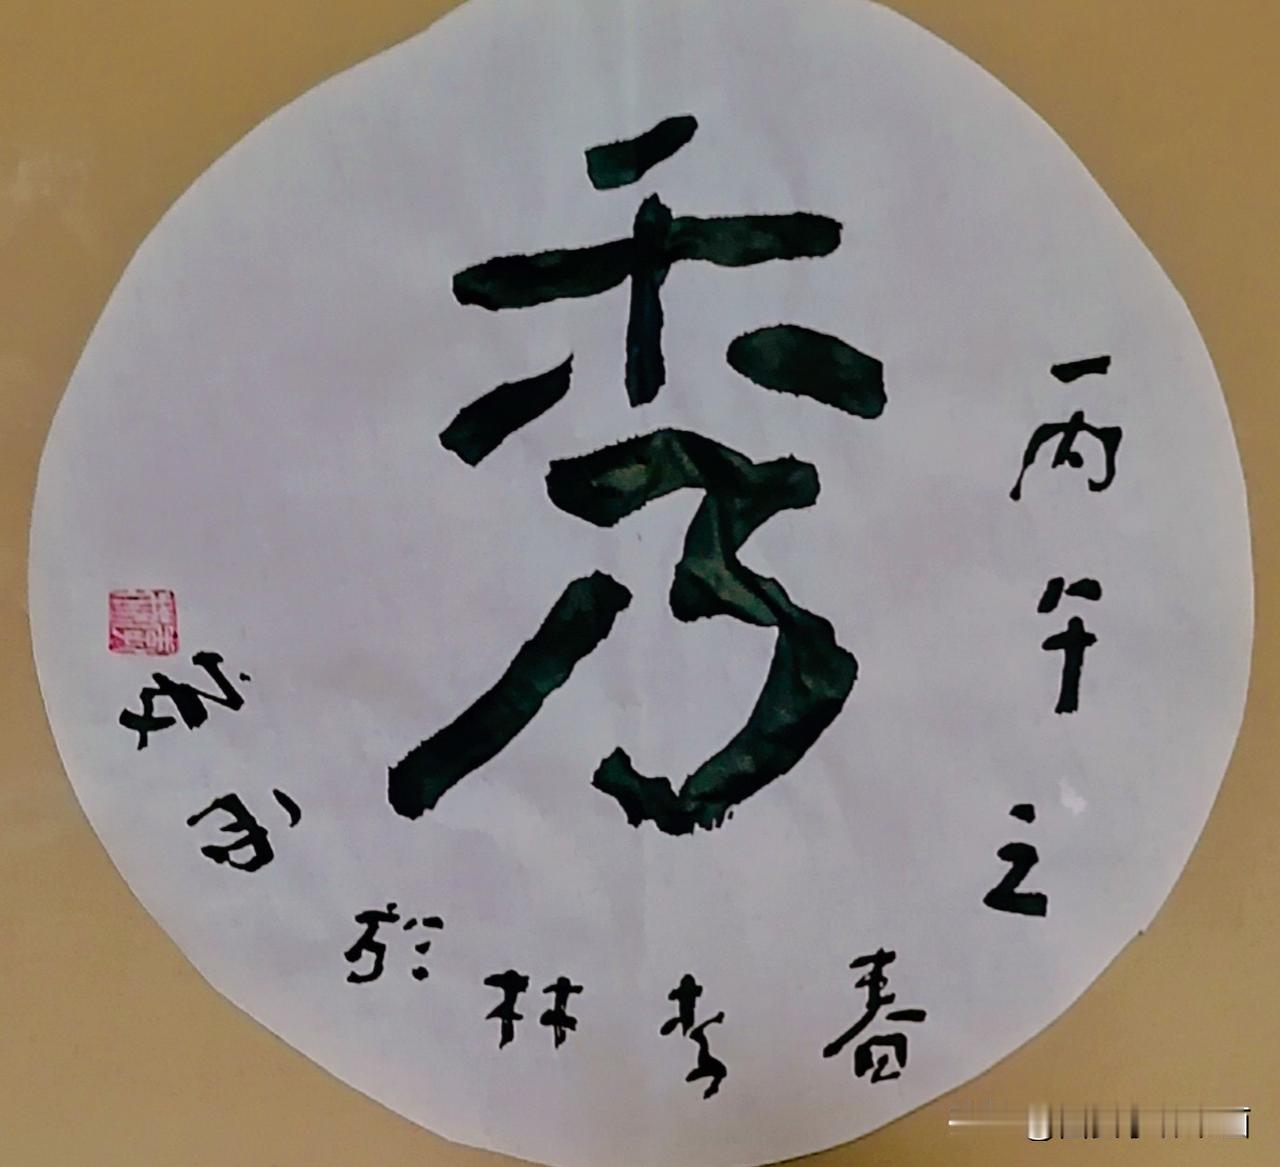 秀
丙午之春李林於西安